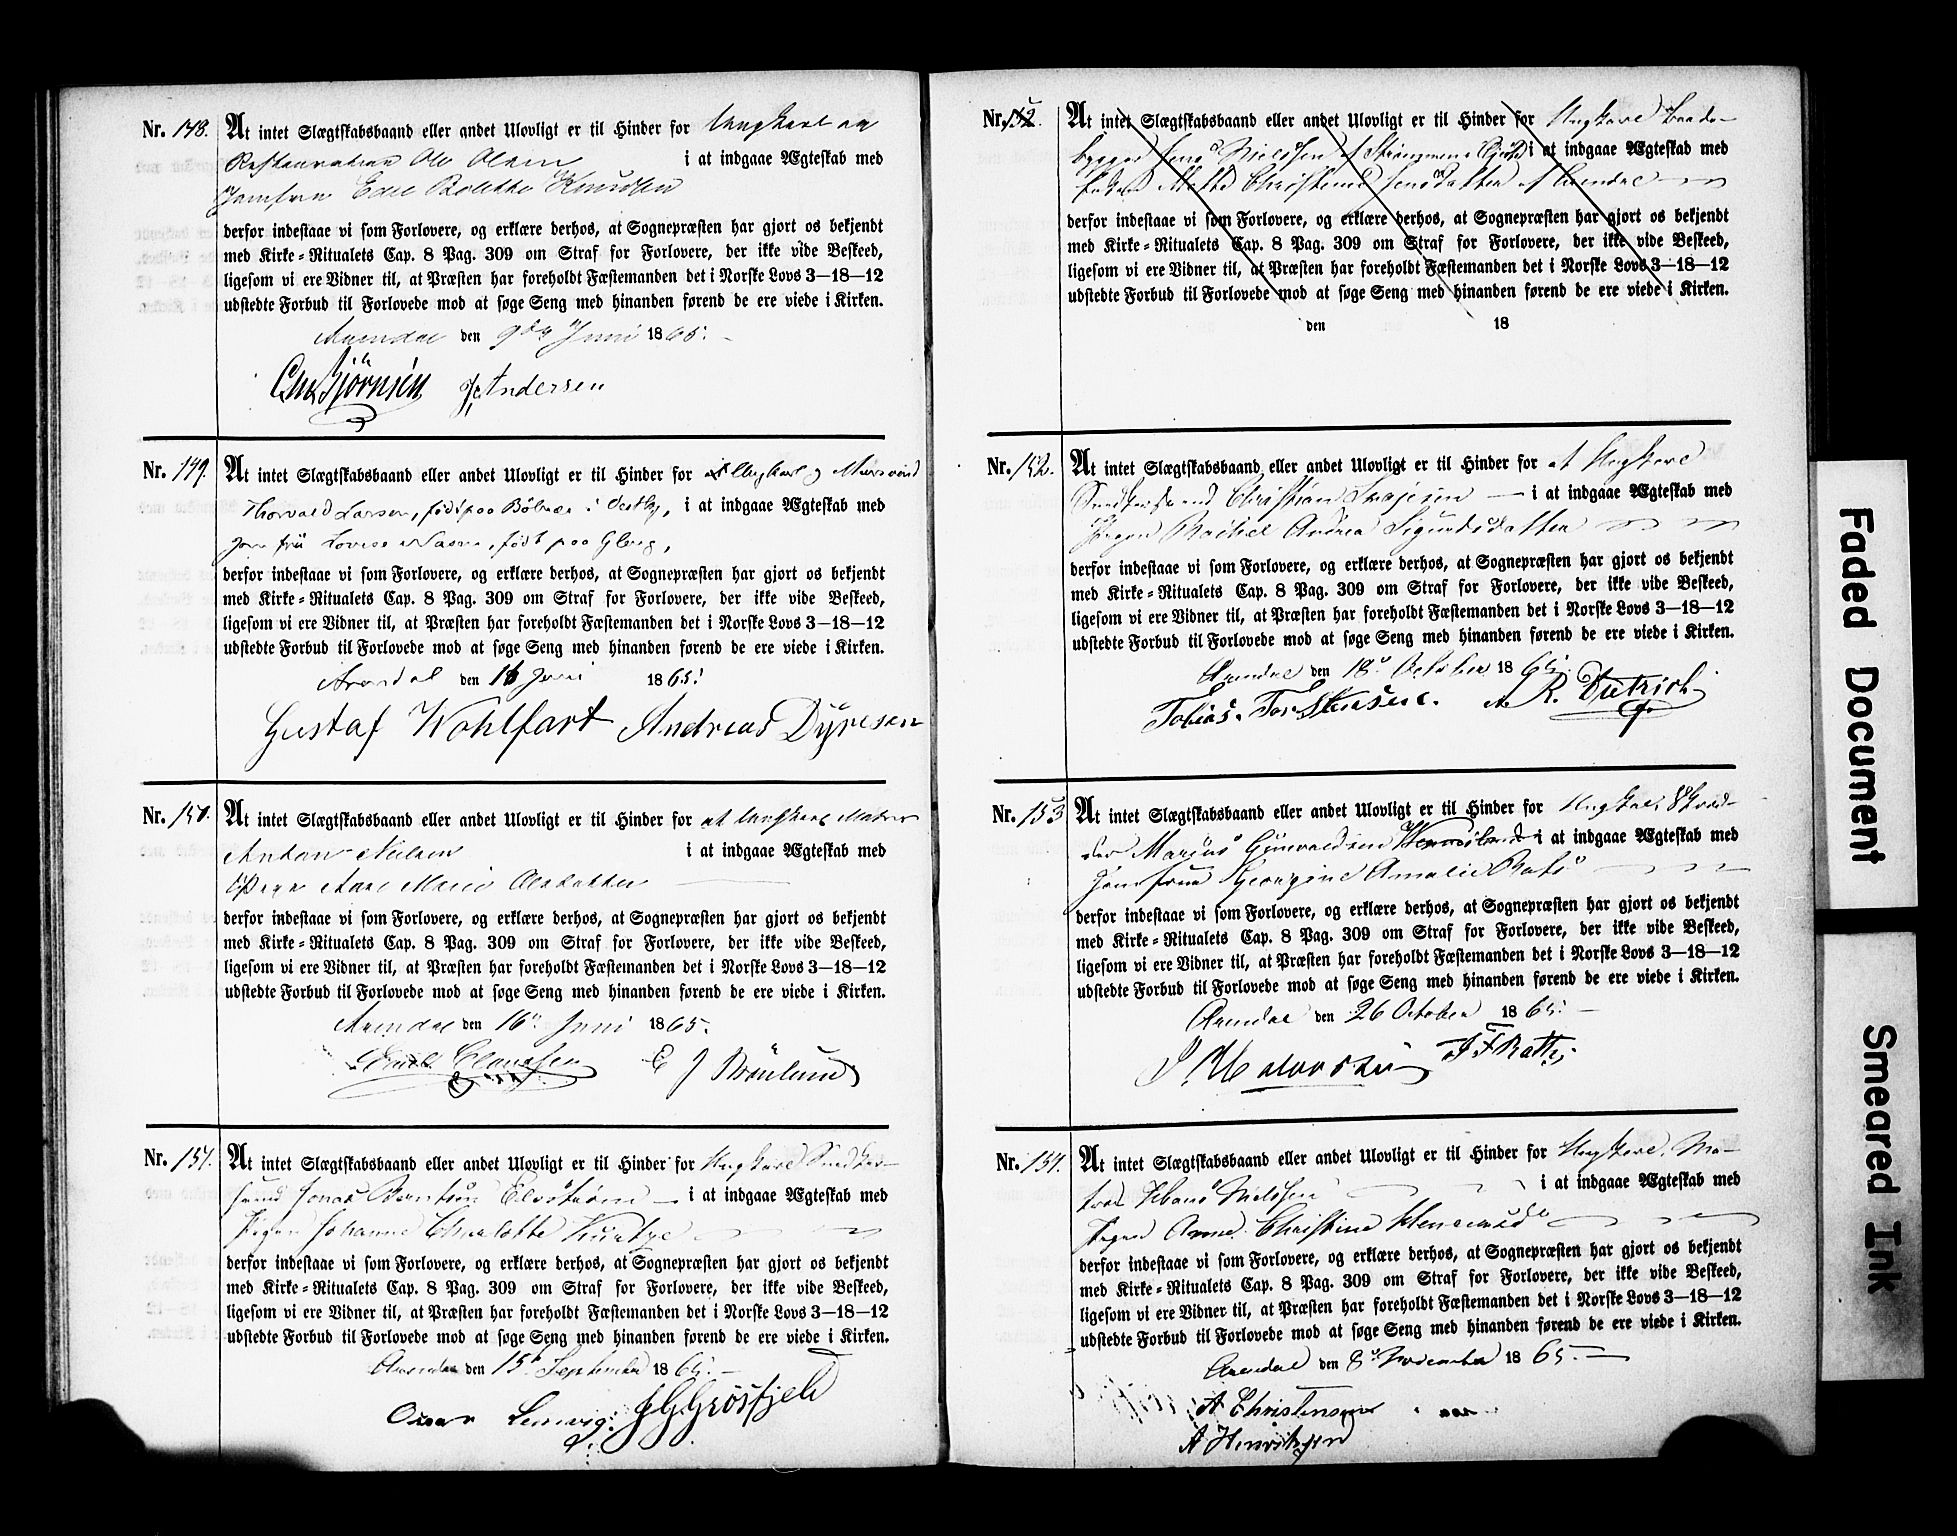 Nr. 148. At intet Slægtskabsbaand eller andet Ulovligt er til Hinder for Ungkarl
Ole Olsen i at indgaae Ægteskab med
Jomfru Bolette Knudsen
derfor indestaae vi som Forlovere, og erklære derhos, at Sognepræsten har gjort os bekjendt
med Kirke-Ritualets Cap. 8 Pag. 309 om Straf for Forlovere, der ikke vide Beskeed,
ligesom vi ere Vidner til, at Præsten har foreholdt Fæstemanden det i Norske Lovs 3—18—12
udstedte Forbud til Forlovede mod at søge Seng med hinanden førend de ere viede i Kirken.
Arendal den 9de Juni 1865.
Chr Bjørnsen J. Andersen
Nr. 149. At intet Slægtskabsbaand eller andet Ulovligt er til Hinder for at Ungkarl og Mursvend
Thorvald Larsen, født paa i Vestby, i at indgaae Ægteskab med
Jomfru Lovise, født paa Glemg,
derfor indestaae vi som Forlovere, og erklære derhos, at Sognepræsten har gjort os bekjendt
med Kirke-Ritualets Cap. 8 Pag. 309 om Straf for Forlovere, der ikke vide Beskeed,
ligesom vi ere Vidner til, at Præsten har foreholdt Fæstemanden det i Norske Lovs 3—18—12
udstedte Forbud til Forlovede mod at søge Seng med hinanden førend de ere viede i Kirken.
Arendal den 16 Juni 1865.
Gustaf Wohlfart Andreas Dyresen
Nr. 150. At intet Slægtskabsbaand eller andet Ulovligt er til Hinder for at Ungkarl Matros
Anton Nielsen i at indgaae Ægteskab med
Pige Ane Marie Olsdatter
derfor indestaae vi som Forlovere, og erklære derhos, at Sognepræsten har gjort os bekjendt
med Kirke-Ritualets Cap. 8 Pag. 309 om Straf for Forlovere, der ikke vide Beskeed,
ligesom vi ere Vidner til, at Præsten har foreholdt Fæstemanden det i Norske Lovs 3—18—12
udstedte Forbud til Forlovede mod at søge Seng med hinanden førend de ere viede i Kirken.
Arendal den 16 Juni 1865.
Emil Clausen E J Brönlund
Nr. 151. At intet Slægtskabsbaand eller andet Ulovligt er til Hinder for Ungkarl Snedker-
svend Jonas Berntsen Elvstrøm i at indgaae Ægteskab med
Pigen Johanne Charlotte
derfor indestaae vi som Forlovere, og erklære derhos, at Sognepræsten har gjort os bekjendt
med Kirke-Ritualets Cap. 8 Pag. 309 om Straf for Forlovere, der ikke vide Beskeed,
ligesom vi ere Vidner til, at Præsten har foreholdt Fæstemanden det i Norske Lovs 3—18—12
udstedte Forbud til Forlovede mod at søge Seng med hinanden førend de ere viede i Kirken.
Arendal den 15 September 1865.
Oscar Lemvig. J G Grösfjeld
Nr. 152. At intet Slægtskabsbaand eller andet Ulovligt er til Hinder for Ungkarl Baads-
bygger Jens Nielsen af i at indgaae Ægteskab med
Mette Christine Jensdatter af Arendal
derfor indestaae vi som Forlovere, og erklære derhos, at Sognepræsten har gjort os bekjendt
med Kirke-Ritualets Cap. 8 Pag. 309 om Straf for Forlovere, der ikke vide Beskeed,
ligesom vi ere Vidner til, at Præsten har foreholdt Fæstemanden det i Norske Lovs 3—18—12
udstedte Forbud til Forlovede mod at søge Seng med hinanden førend de ere viede i Kirken.
den 18
Nr. 152. At intet Slægtskabsbaand eller andet Ulovligt er til Hinder for at Ungkarl
Snedkersvend Christian i at indgaae Ægteskab med
Pigen Rachel Andrea Sigurdsdatter
derfor indestaae vi som Forlovere, og erklære derhos, at Sognepræsten har gjort os bekjendt
med Kirke-Ritualets Cap. 8 Pag. 309 om Straf for Forlovere, der ikke vide Beskeed,
ligesom vi ere Vidner til, at Præsten har foreholdt Fæstemanden det i Norske Lovs 3—18—12
udstedte Forbud til Forlovede mod at søge Seng med hinanden førend de ere viede i Kirken.
Arendal den 18 October 1865.
Tobias. A R. Dietrich
Nr. 153 At intet Slægtskabsbaand eller andet Ulovligt er til Hinder for Ungkarl Skræd-
der Marius Gunvaldsen i at indgaae Ægteskab med
Jomfrue Georgine Amalie
derfor indestaae vi som Forlovere, og erklære derhos, at Sognepræsten har gjort os bekjendt
med Kirke-Ritualets Cap. 8 Pag. 309 om Straf for Forlovere, der ikke vide Beskeed,
ligesom vi ere Vidner til, at Præsten har foreholdt Fæstemanden det i Norske Lovs 3—18—12
udstedte Forbud til Forlovede mod at søge Seng med hinanden førend de ere viede i Kirken.
Arendal den 26 October 1865.
P. Halvorsen
Nr. 154. At intet Slægtskabsbaand eller andet Ulovligt er til Hinder for Ungkarl Ma-
tros Nielsen i at indgaae Ægteskab med
Pigen Anne Christine
derfor indestaae vi som Forlovere, og erklære derhos, at Sognepræsten har gjort os bekjendt
med Kirke-Ritualets Cap. 8 Pag. 309 om Straf for Forlovere, der ikke vide Beskeed,
ligesom vi ere Vidner til, at Præsten har foreholdt Fæstemanden det i Norske Lovs 3—18—12
udstedte Forbud til Forlovede mod at søge Seng med hinanden førend de ere viede i Kirken.
Arendal den 8 November 1865.
A Christensen
A Henriksen
Faded Document
Smeared Ink